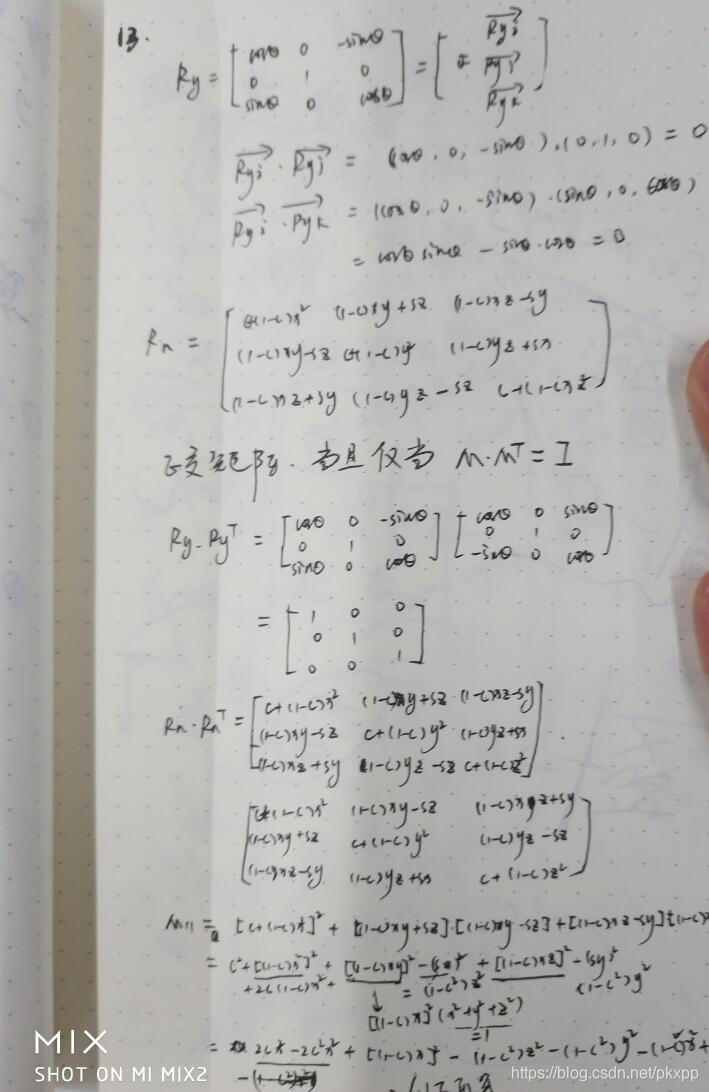 13.
Ry = [ cosθ 0 -sinθ ; 0 1 0 ; sinθ 0 cosθ ] = [ Ryi ; Ryj ; Ryk ]
Ryi · Ryj = (cosθ, 0, -sinθ)·(0,1,0) = 0
Ryi · Ryk = (cosθ, 0, -sinθ)·(sinθ, 0, cosθ)
= cosθ sinθ - sinθ·cosθ = 0
Rn = [ c+(1-c)x² (1-c)xy+sz (1-c)xz-sy
(1-c)xy-sz c+(1-c)y² (1-c)yz+sx
(1-c)xz+sy (1-c)yz-sz c+(1-c)z² ]
正交矩阵. 当且仅当 M·Mᵀ = I
Ry·Ryᵀ = [ cosθ 0 -sinθ ; 0 1 0 ; sinθ 0 cosθ ] [ cosθ 0 sinθ ; 0 1 0 ; -sinθ 0 cosθ ]
= [ 1 0 0 ; 0 1 0 ; 0 0 1 ]
Rn·Rnᵀ = [ c+(1-c)x² (1-c)xy+sz (1-c)xz-sy
(1-c)xy-sz c+(1-c)y² (1-c)yz+sx
(1-c)xz+sy (1-c)yz-sz c+(1-c)z² ]
[ c+(1-c)x² (1-c)xy-sz (1-c)xz+sy
(1-c)xy+sz c+(1-c)y² (1-c)yz-sz
(1-c)xz-sy (1-c)yz+sx c+(1-c)z² ]
M11 = [c+(1-c)x²]² + [(1-c)xy+sz]·[(1-c)xy-sz] + [(1-c)xz-sy]
= c²+[(1-c)x²]² + [(1-c)xy]² - (sz)² + [(1-c)xz]² - (sy)²
+2c(1-c)x²+ = (1-c²)z² (1-c²)y²
[(1-c)x]²(x²+y²+z²)
=1
= 2cx²-2c²x² + [(1-c)x]² - (1-c²)z² - (1-c²)y²
MIX
SHOT ON MI MIX2
https://blog.csdn.net/pkxpp